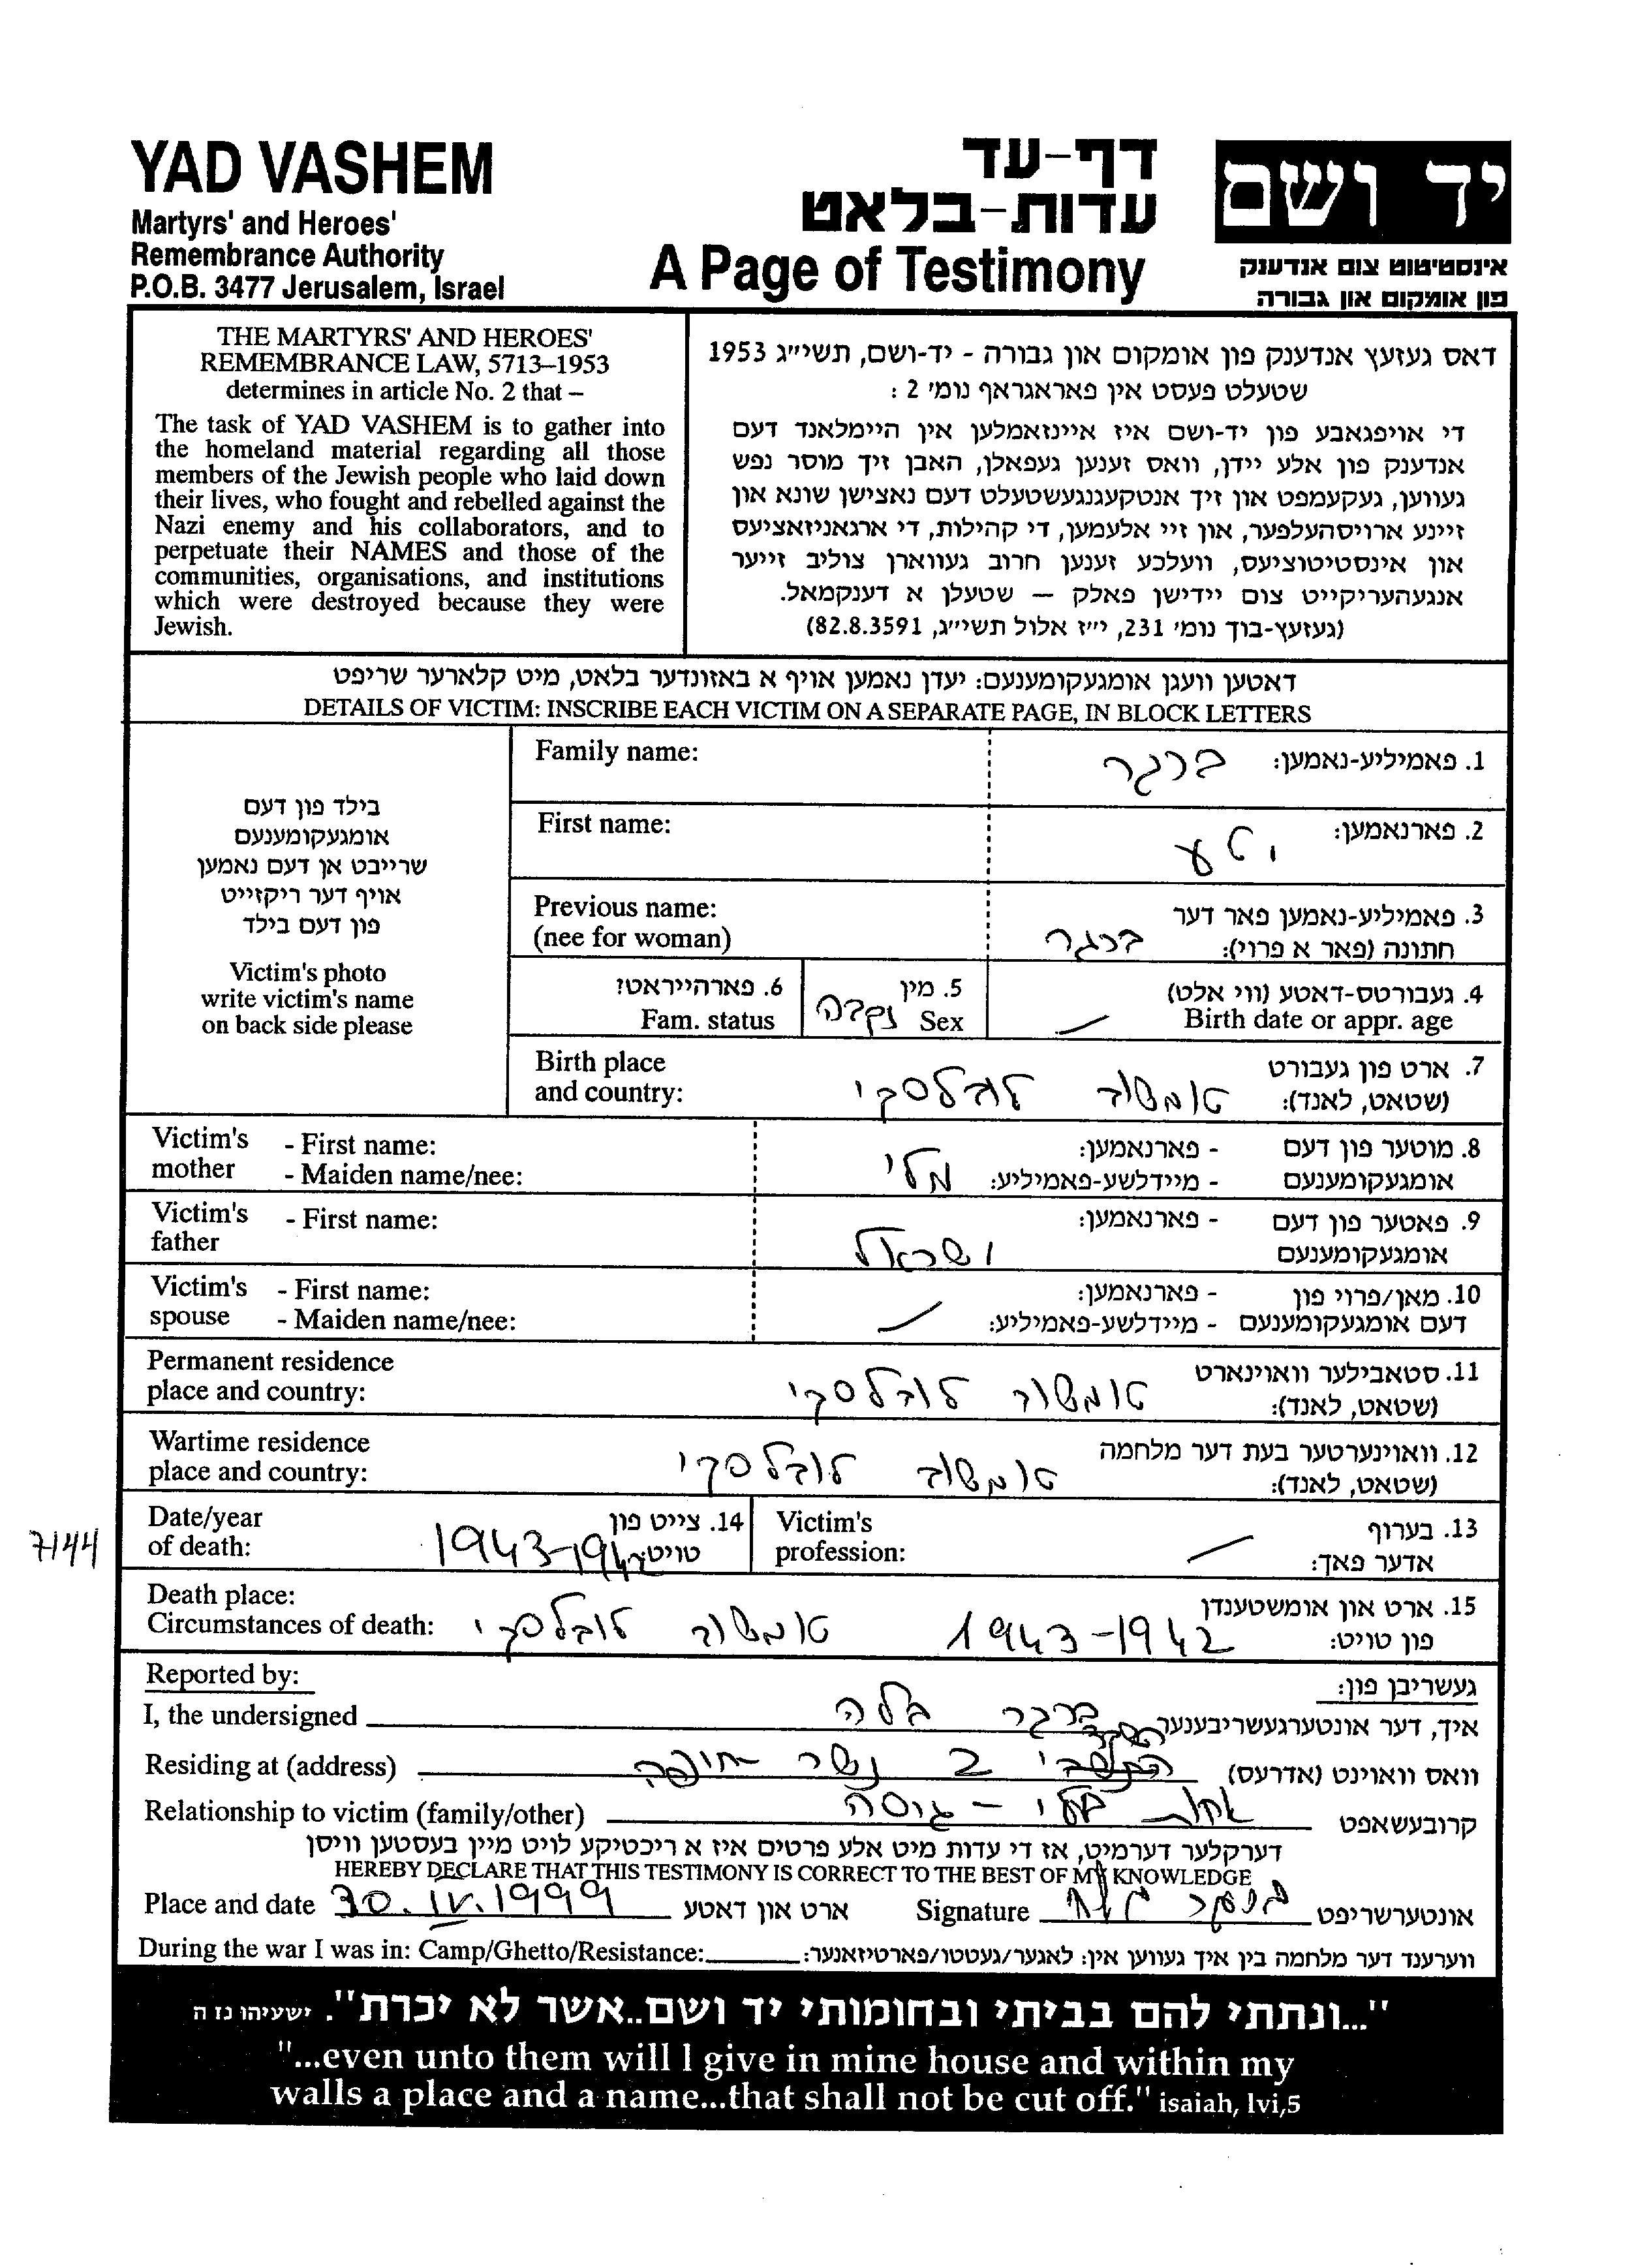 YAD VASHEM
Martyrs' and Heroes'
Remembrance Authority
P.O.B. 3477 Jerusalem, Israel
דף-עד
עדות-בלאט
A Page of Testimony
יד ושם
אינסטיטוט צום אנדענק
פון אומקום און גבורה
THE MARTYRS' AND HEROES'
REMEMBRANCE LAW, 5713–1953
determines in article No. 2 that –
The task of YAD VASHEM is to gather into
the homeland material regarding all those
members of the Jewish people who laid down
their lives, who fought and rebelled against the
Nazi enemy and his collaborators, and to
perpetuate their NAMES and those of the
communities, organisations, and institutions
which were destroyed because they were
Jewish.
דאס געזעץ אנדענק פון אומקום און גבורה - יד-ושם, תשי״ג 1953
שטעלט פעסט אין פאראגראף נומ׳ 2 :
די אויפגאבע פון יד-ושם איז איינזאמלען אין היימלאנד דעם
אנדענק פון אלע יידן, וואס זענען געפאלן, האבן זיך מוסר נפש
געווען, געקעמפט און זיך אנטקעגנגעשטעלט דעם נאצישן שונא און
זיינע ארויסהעלפער, און זיי אלעמען, די קהילות, די ארגאניזאציעס
און אינסטיטוציעס, וועלכע זענען חרוב געווארן צוליב זייער
אנגעהעריקייט צום יידישן פאלק — שטעלן א דענקמאל.
(געזעץ-בוך נומ׳ 231, י״ז אלול תשי״ג, 82.8.3591)
דאטען וועגן אומגעקומענעם: יעדן נאמען אויף א באזונדער בלאט, מיט קלארער שריפט
DETAILS OF VICTIM: INSCRIBE EACH VICTIM ON A SEPARATE PAGE, IN BLOCK LETTERS
בילד פון דעם
אומגעקומענעם
שרייבט אן דעם נאמען
אויף דער ריקזייט
פון דעם בילד
Victim's photo
write victim's name
on back side please
Family name: ברגר 1. פאמיליע-נאמען:
First name: יטע 2. פארנאמען:
Previous name: 3. פאמיליע-נאמען פאר דער
(nee for woman) ברגר חתונה (פאר א פרוי):
6. פארהייראט? 5. מין 4. געבורטס-דאטע (ווי אלט)
Fam. status נקבה Sex Birth date or appr. age
Birth place 7. ארט פון געבורט
and country: טומשוב לובלסקי (שטאט, לאנד):
Victim's - First name: - פארנאמען: 8. מוטער פון דעם
mother - Maiden name/nee: מלי - מיידלשע-פאמיליע: אומגעקומענעם
Victim's - First name: - פארנאמען: 9. פאטער פון דעם
father ישראל אומגעקומענעם
Victim's - First name: - פארנאמען: 10. מאן/פרוי פון
spouse - Maiden name/nee: - מיידלשע-פאמיליע: דעם אומגעקומענעם
Permanent residence 11. סטאבילער וואוינארט
place and country: טומשוב לובלסקי (שטאט, לאנד):
Wartime residence 12. וואוינערטער בעת דער מלחמה
place and country: טומשוב לובלסקי (שטאט, לאנד):
Date/year 14. צייט פון Victim's 13. בערוף
of death: 1943-1942 טויט: profession: אדער פאך:
7144
Death place: 15. ארט און אומשטענדן
Circumstances of death: טומשוב לובלסקי 1943-1942 פון טויט:
Reported by: געשריבן פון:
I, the undersigned ברגר בלה איך, דער אונטערגעשריבענער
Residing at (address) 2 נשר חיפה וואס וואוינט (אדרעס)
Relationship to victim (family/other) אחות בעלי - גיסה קרובעשאפט
דערקלער דערמיט, אז די עדות מיט אלע פרטים איז א ריכטיקע לויט מיין בעסטען וויסן
HEREBY DECLARE THAT THIS TESTIMONY IS CORRECT TO THE BEST OF MY KNOWLEDGE
Place and date 30.IV.1999 ארט און דאטע Signature אונטערשריפט
During the war I was in: Camp/Ghetto/Resistance: ווערענד דער מלחמה בין איך געווען אין: לאגער/געטטו/פארטיזאנער:
"...ונתתי להם בביתי ובחומותי יד ושם..אשר לא יכרת". ישעיהו נז ה
"...even unto them will I give in mine house and within my
walls a place and a name...that shall not be cut off." isaiah, lvi,5